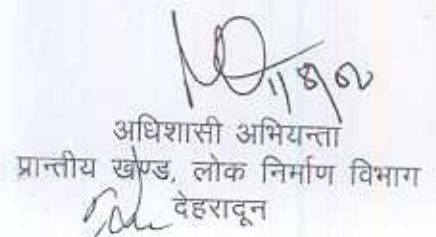 अधिशासी अभियन्ता
प्रान्तीय खण्ड, लोक निर्माण विभाग
देहरादून